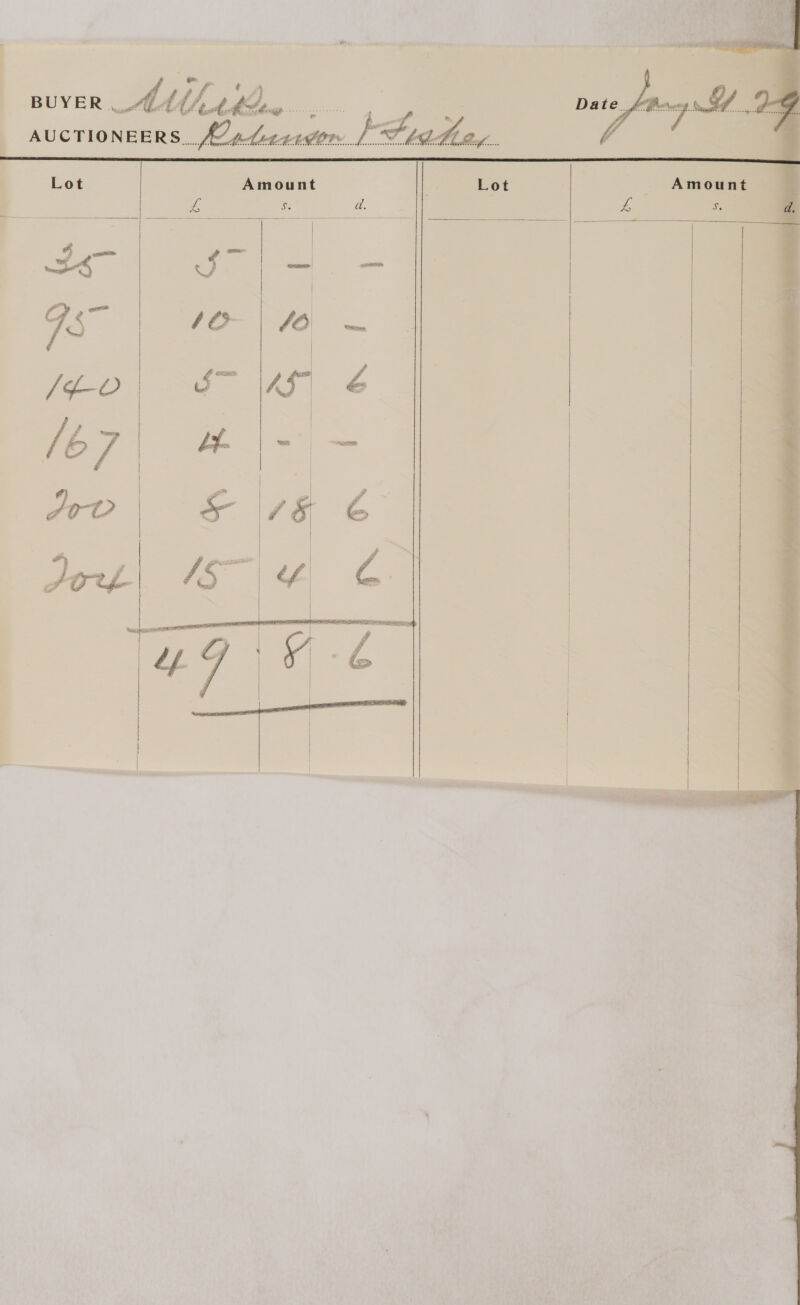 BUYER
Date Jany 31 29
AUCTIONEERS Robinson & Fisher
Lot Amount Lot Amount
£ s. d. £ s. d.
35 5 — —
95 10 10 —
140 5 15 6
167 4 - —
200 8 18 6
204 15 4 6
49 8 - 6